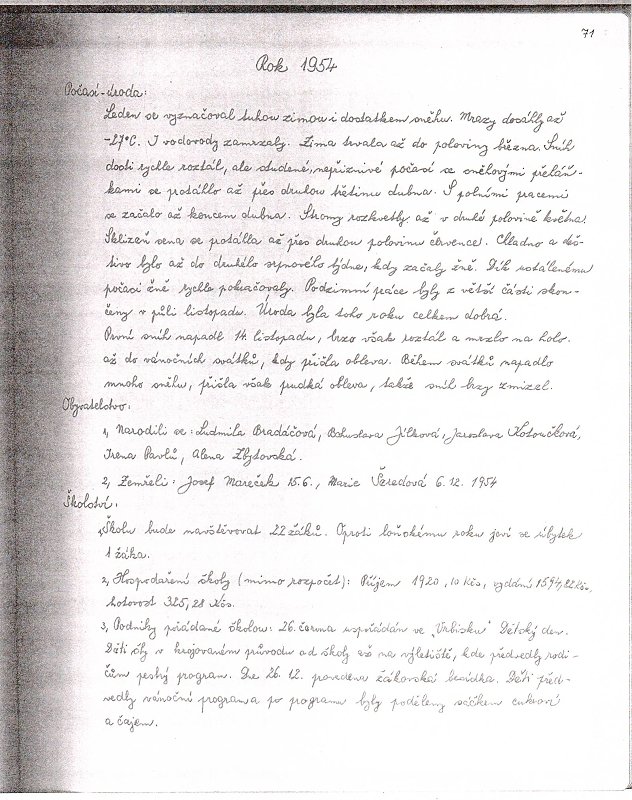 71
Rok 1954
Počasí-úroda:
Leden se vyznačoval tuhou zimou i dostatkem sněhu. Mrazy dosáhly až
-27°C. I vodovody zamrzaly. Zima trvala až do poloviny března. Sníh
dosti rychle roztál, ale studené, nepříznivé počasí se sněhovými přeháň-
kami se protáhlo až přes druhou třetinu dubna. S polními pracemi
se začalo až koncem dubna. Stromy rozkvetly až v druhé polovině května.
Sklizeň sena se protáhla až přes druhou polovinu července. Chladno a deš-
tivo bylo až do druhého srpnového týdne, kdy začaly žně. Dík ustálenému
počasí žně rychle pokračovaly. Podzimní práce byly z větší části skon-
čeny v půli listopadu. Úroda byla toho roku celkem dobrá.
První sníh napadl 14. listopadu, brzo však roztál a mrzlo na holo.
až do vánočních svátků, kdy přišla obleva. Během svátků napadlo
mnoho sněhu, přišla však prudká obleva, takže sníh brzy zmizel.
Obyvatelstvo:
1, Narodili se: Ludmila Bradáčová, Bohuslava Jílková, Jaroslava Kotoučková,
Irena Pavlů, Alena Zbytovská.
2, Zemřeli: Josef Mareček 15.6., Marie Šeredová 6.12. 1954
Školství:
1, Školu bude navštěvovat 22 žáků. Oproti loňskému roku jeví se úbytek
1 žáka.
2, Hospodaření školy (mimo rozpočet): Příjem 1920,10 Kčs, vydání 1594,82 Kčs,
hotovost 325,28 Kčs.
3, Podniky pořádané školou: 26. června uspořádán ve "Vrbisku" Dětský den.
Děti šly v krojovaném průvodu od školy až na výletiště, kde předvedly rodi-
čům pestrý program. Dne 26. 12. provedena žákovská besídka. Děti před-
vedly vánoční program a po programu byly poděleny sáčkem cukroví
a čajem.